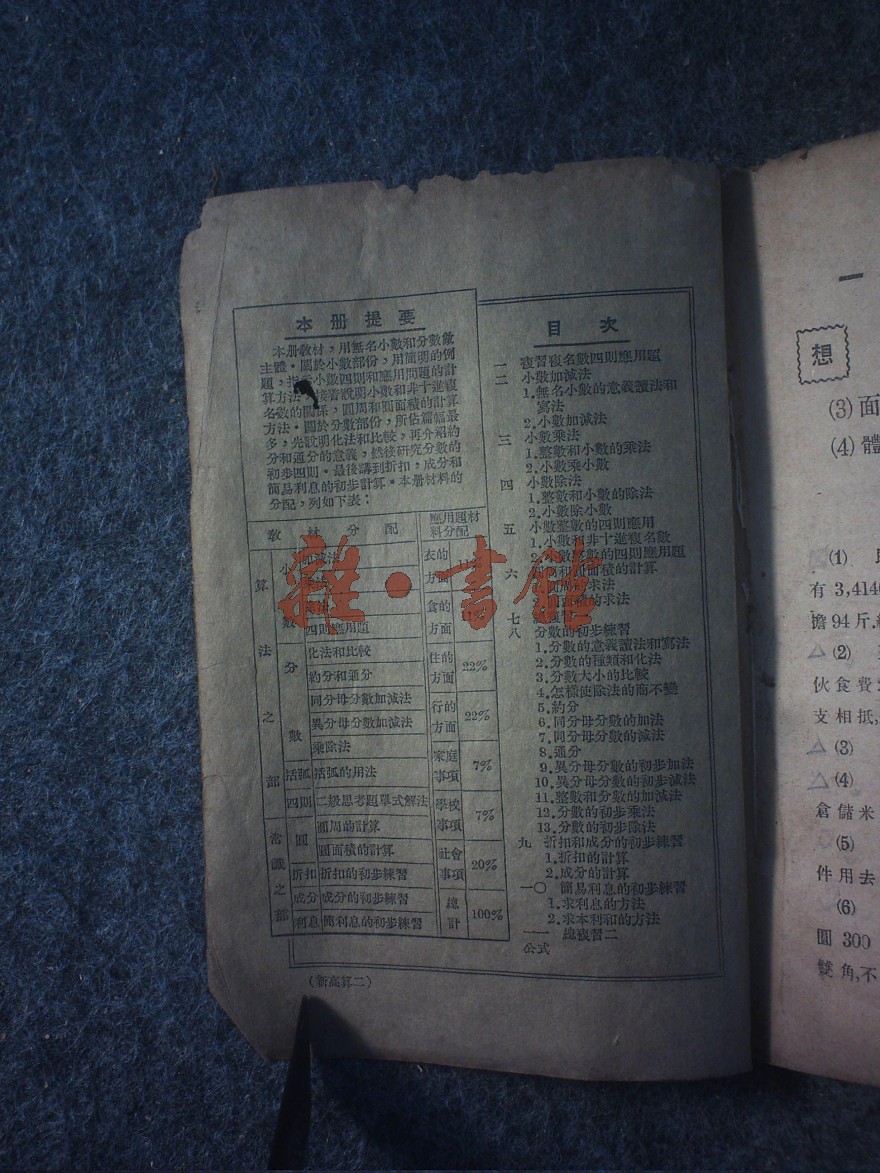 本册提要
本册敎材，用無名小數和分數做
主體。關於小數部份，用簡明的例
題，指示小數四則和應用問題的計
算方法。接着說明小數和非十進複
名數的關係，圓周和圓面積的計算
方法。關於分數部份，所佔篇幅最
多，先說明化法和比較，再介紹約
分和通分的意義，然後研究分數的
初步四則。最後講到折扣，成分和
簡易利息的初步計算。本册材料的
分配，列如下表：
敎材分配
應用題材
料分配
算法之部
小數
加減法
四則應用題
分數
化法和比較
約分和通分
同分母分數加減法
異分母分數加減法
乘除法
括弧 括弧的用法
四則 二級思考題單式解法
常識之部
圓
圓周的計算
圓面積的計算
折扣 折扣的初步練習
成分 成分的初步練習
利息 簡利息的初步練習
衣的方面
食的方面
住的方面 22%
行的方面 22%
家庭事項 7%
學校事項 7%
社會事項 20%
總計 100%
（新高算二）
目次
一 複習複名數四則應用題
二 小數加減法
1. 無名小數的意義讀法和
寫法
2. 小數加減法
三 小數乘法
1. 整數和小數的乘法
2. 小數乘小數
四 小數除法
1. 整數和小數的除法
2. 小數除小數
五 小數整數的四則應用
1. 小數和非十進複名數
2. 小數整數的四則應用題
六 圓周和圓面積的計算
求法
面積的求法
七
八 分數的初步練習
1. 分數的意義讀法和寫法
2. 分數的種類和化法
3. 分數大小的比較
4. 怎樣使除法的商不變
5. 約分
6. 同分母分數的加法
7. 同分母分數的減法
8. 通分
9. 異分母分數的初步加法
10. 異分母分數的初步減法
11. 整數和分數的加減法
12. 分數的初步乘法
13. 分數的初步除法
九 折扣和成分的初步練習
1. 折扣的計算
2. 成分的計算
一〇 簡易利息的初步練習
1. 求利息的方法
2. 求本利和的方法
一一 總複習二
公式
雜·書館
一
想
(3) 面
(4) 體
(1)
有 3,414
擔 94 斤,
△ (2)
伙食費
支相抵,
△ (3)
△ (4)
倉儲米
(5)
件用去
(6)
圓 300
雙角,不